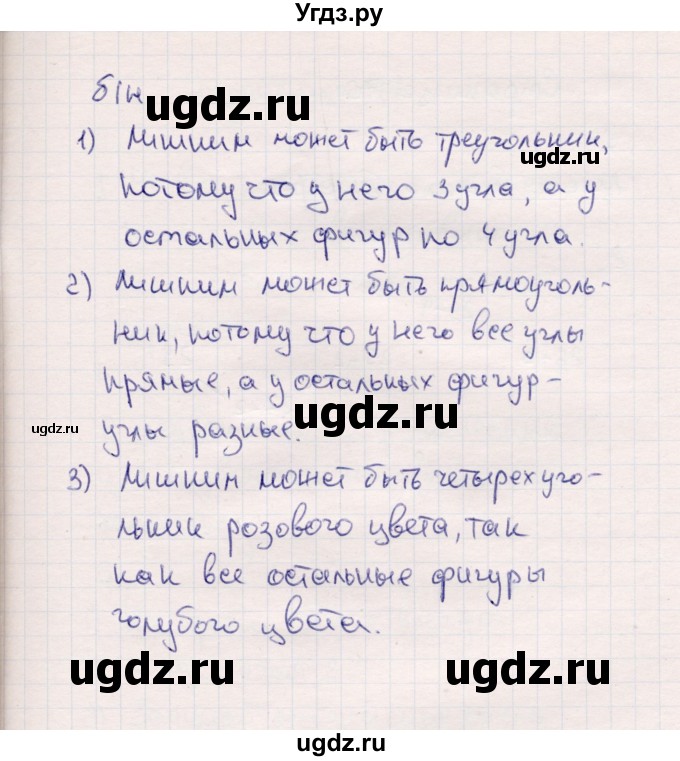 Угдз.ру
ugdz.ru
1) Лишним может быть треугольник,
ugdz.ru
потому что у него 3 угла, а у
остальных фигур по 4 угла.
2) Лишним может быть прямоуголь-
ник, потому что у него все углы
прямые, а у остальных фигур-
ugdz.ru
ugdz.ru
углы разные.
3) Лишним может быть четырехуго-
льник розового цвета, так
как все остальные фигуры
голубого цвета.
ugdz.ru ugdz.ru
ugdz.ru